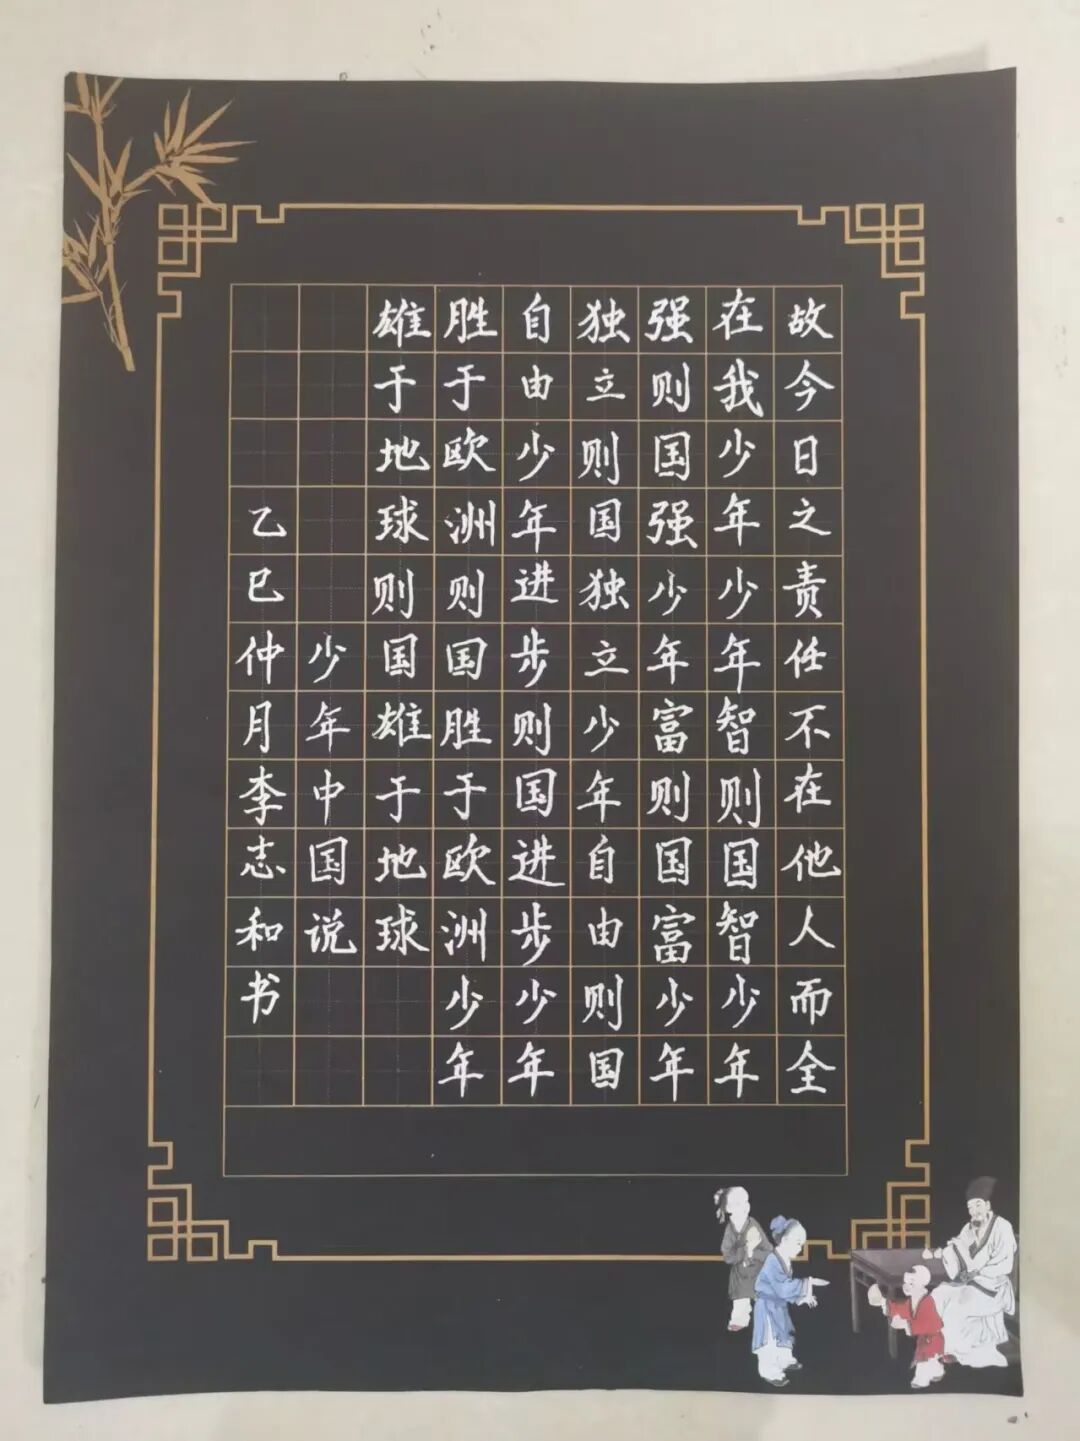 故今日之责任不在他人而全
在我少年少年智则国智少年
强则国强少年富则国富少年
独立则国独立少年自由则国
自由少年进步则国进步少年
胜于欧洲则国胜于欧洲少年
雄于地球则国雄于地球
少年中国说
乙巳仲月李志和书